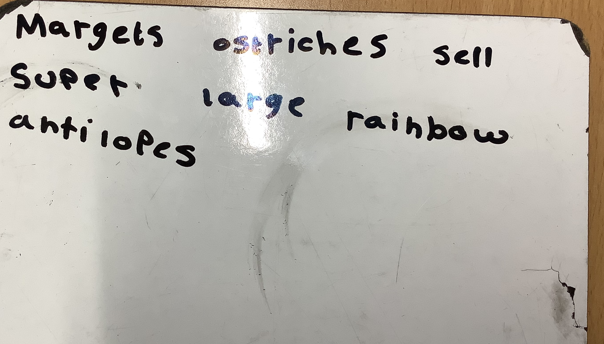 Margets ostriches sell
super large rainbow
antilopes